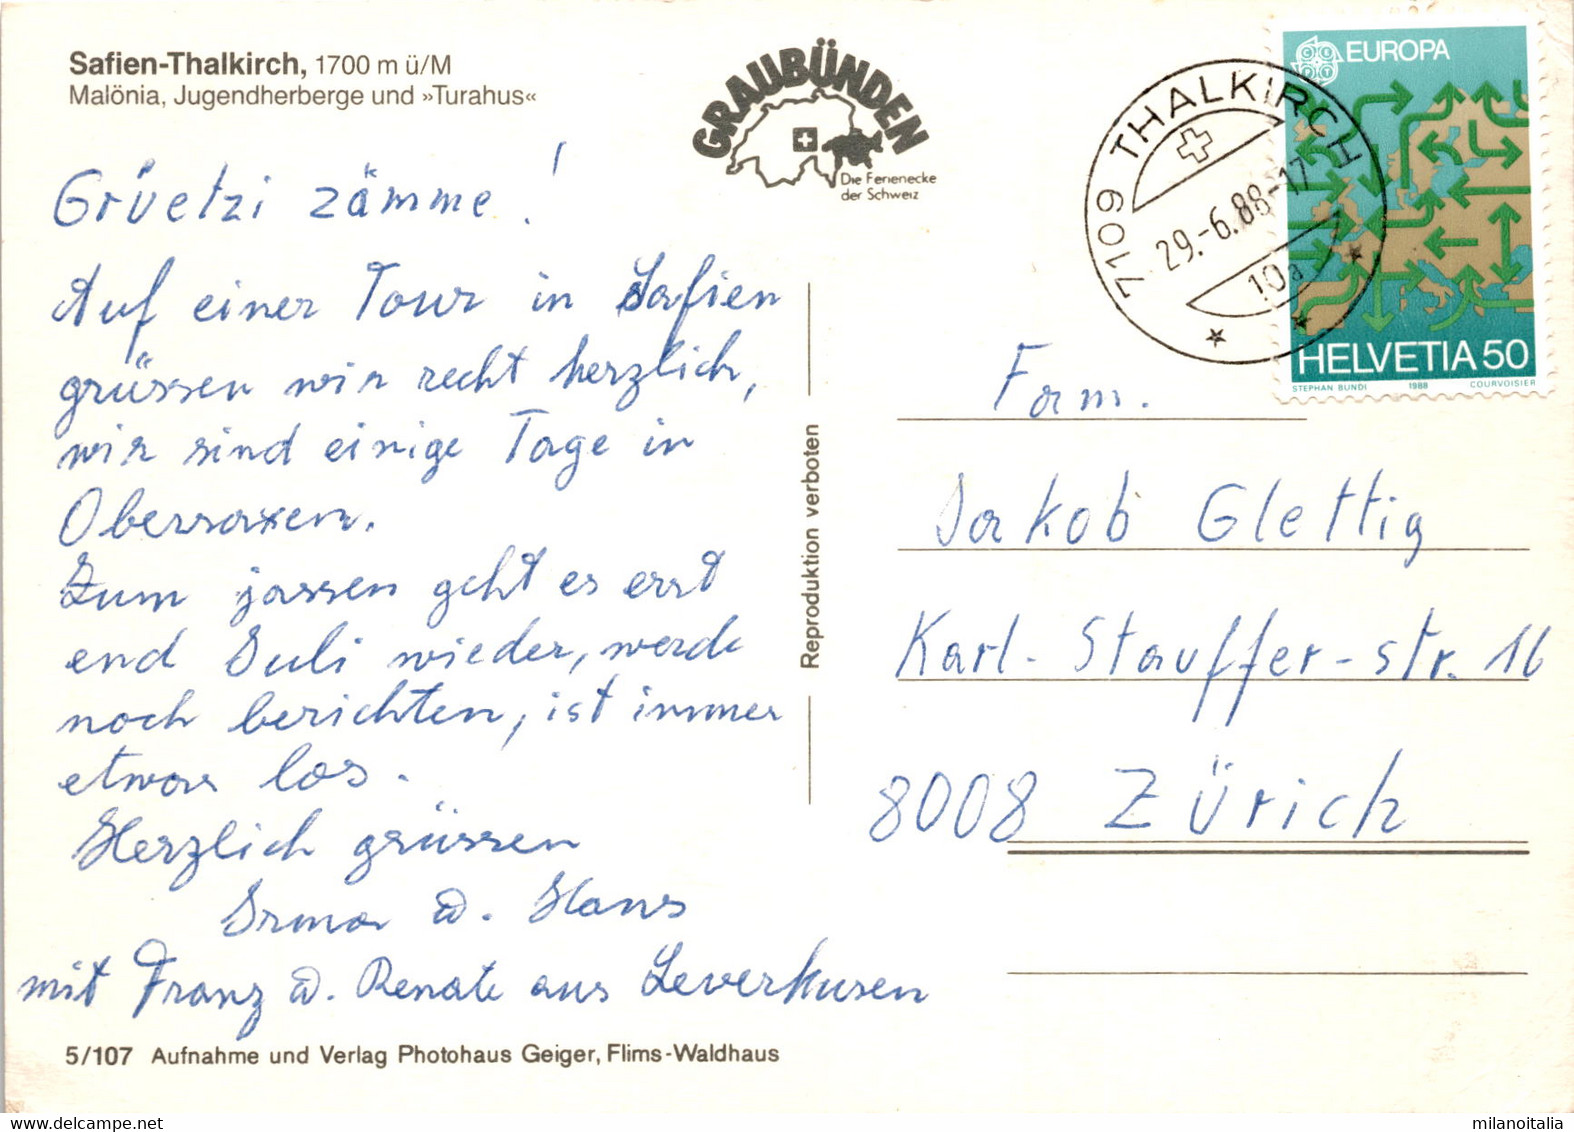 Safien-Thalkirch, 1700 m ü/M
Malönia, Jugendherberge und »Turahus«
Grüetzi zämme!
Auf einer Tour in Safien
grüssen wir recht herzlich,
wir sind einige Tage in
Obersaxen.
Zum jassen geht es erst
end Juli wieder, werde
noch berichten, ist immer
etwas los.
Herzlich grüssen
Irma u. Hans
mit Franz u. Renate aus Leverkusen
5/107 Aufnahme und Verlag Photohaus Geiger, Flims-Waldhaus
GRAUBÜNDEN
Die Ferienecke
der Schweiz
Reproduktion verboten
7109 THALKIRCH
29.-6.88-17
10a
CEPT
EUROPA
HELVETIA 50
STEPHAN BUNDI 1988 COURVOISIER
Fam.
Jakob Glettig
Karl-Stauffer-str. 16
8008 Zürich
milanoitalia